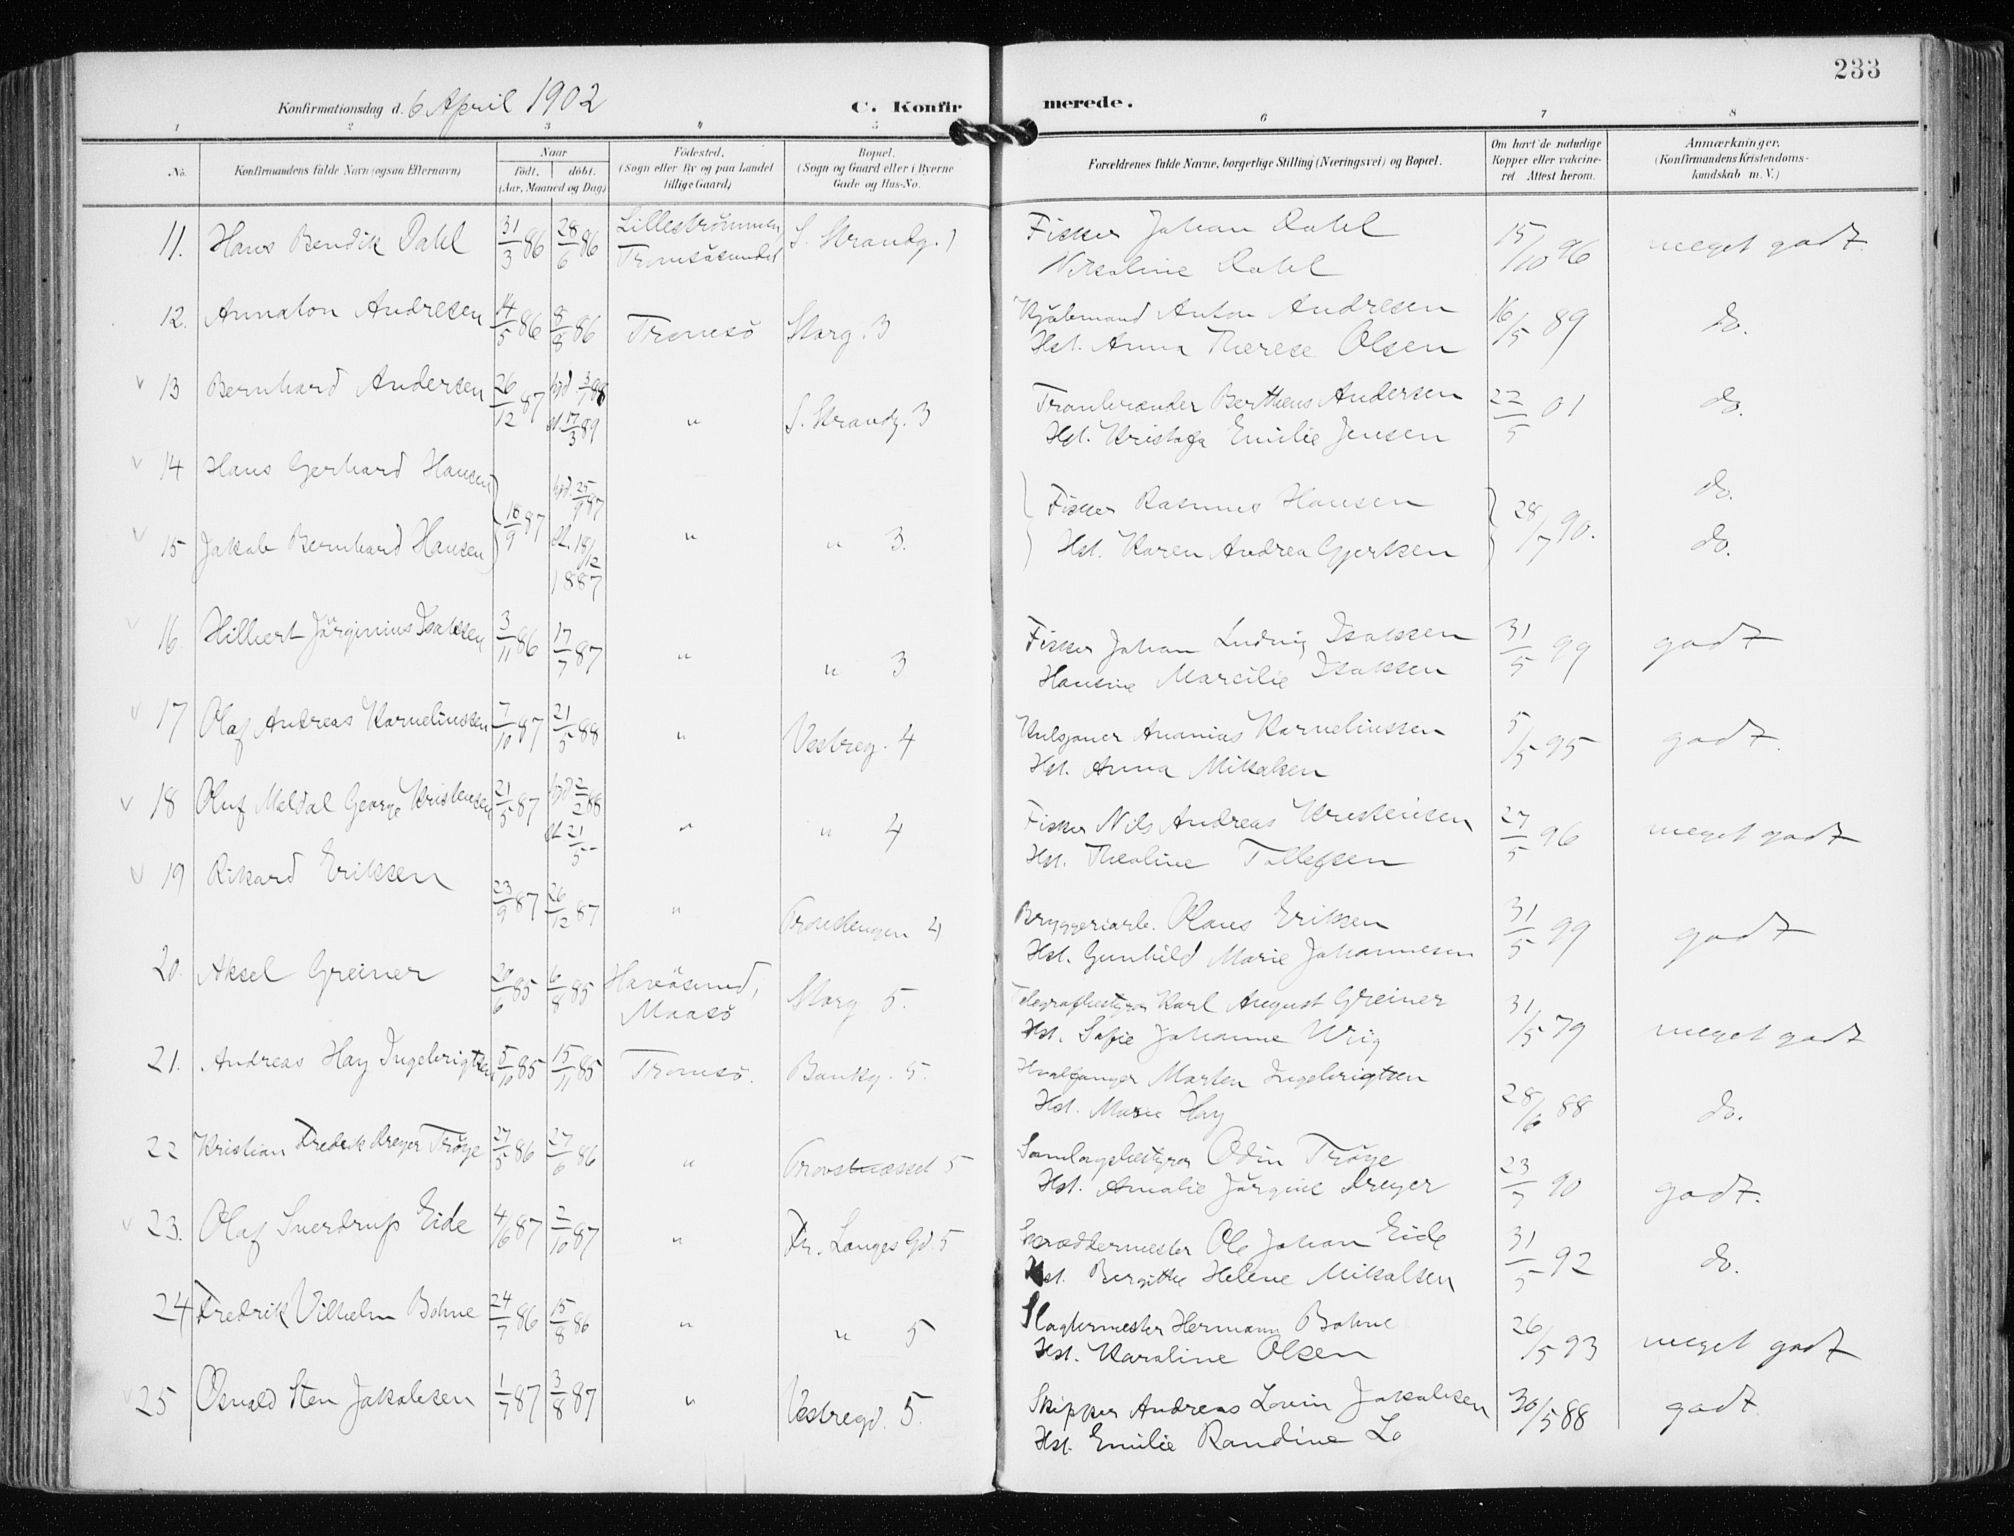 233
Konfirmationsdag d. 6 April 1902
C. Konfirmerede.
1 2 3 4 5 6 7 8
No. Konfirmandens fulde Navn (ogsaa Efternavn). Naar født, døbt. (Aar, Maaned og Dag) Fødested. (Sogn eller By og paa Landet tillige Gaard.) Bopæl. (Sogn og Gaard eller i Byerne Gade og Hus-No. Forældrenes fulde Navne, borgerlige Stilling (Næringsvei) og Bopæl. Om havt de naturlige Kopper eller vakcineret. Attest herom. Anmærkninger. (Konfirmandens Kristendomskundskab m. V.)
11. Hans Bendik Dahl 31/3 86 28/6 86 Lillestrømmen, Tromsøsundet S. Strandg. 1 Fisker Johan Dahl 15/10 96 meget godt.
Nikoline Dahl
12. Annaton Andresen 14/5 86 8/8 86 Tromsö Storg. 3 Kjöbmand Anton Andresen 16/5 89 do.
Hst. Anna Therese Olsen
13 Bernhard Andersen 26/12 87 hjd 3/1 88 st. 17/3 89 " S. Strandg. 3 Tranbrænder Bertheus Andersen 22/5 01 do.
Hst. Kristofa Emilie Jensen
14 Hans Gerhard Hansen 18/9 87 hjd. 25/9 87 Fisker Rasmus Hansen 28/7 90. do.
15 Jakob Bernhard Hansen st. 18/12 1887 " " 3. Hst. Karen Andrea Gjertsen do.
16. Hilbert Jörginius Isaksen 3/11 86 17/7 87 " " 3 Fisker Johan Ludvig Isaksen 31/5 99 godt
Hansine Marcilie Isaksen
17 Olaf Andreas Korneliussen 7/10 87 21/5 88 " Vestreg. 4 Kulsjouer Ananias Korneliussen 5/5 95 godt.
Hst. Anna Mikalsen
18 Oluf Meldal George Kristensen 21/5 87 hjd 2/2 88 st. 21/5 " " 4 Fisker Nils Andreas Kristensen 27/5 96 meget godt
Hst. Thealine Tollefsen
19 Rikard Eriksen 23/9 87 26/12 87 " 4 Bryggeriarb. Olaus Eriksen 31/5 99 godt
Hst. Gunhild Marie Johannesen
20. Aksel Greiner 20/6 85 6/8 85 Havösund, Maasö Storg 5. Telegrafbestyrer Karl August Greiner 31/5 79 meget godt
Hst. Sofie Johanne Wiig
21. Andreas Hay Ingebrigtsen 5/10 85 15/11 85 Tromsö. Bankg. 5. Hvalfanger Morten Ingebrigtsen 28/6 88 do.
Hst. Marie Hay
22 Kristian Fredrik Dreyer Tröye 27/5 86 27/6 86 " 5 Samlagsbestyrer Odin Tröye 23/7 90 godt.
Hst. Amalie Jörgine Dreyer
23. Olaf Sverdrup Eide 4/6 87 2/10 87 " Fr. Langes Gd. 5 Skræddermester Ole Johan Eide 31/5 92 do.
Hst. Bergitte Helene Mikalsen
24 Fredrik Vilhelm Bohne 24/7 86 15/8 86 " " 5 Slagtermester Hermann Bohne 26/5 93 meget godt
Hst. Karoline Olsen
25 Osvald Sten Jakobsen 1/7 87 3/8 87 " Vestregd. 5. Skipper Andreas Lovin Jakobsen 30/5 88 godt
Hst. Emilie Randine Lo